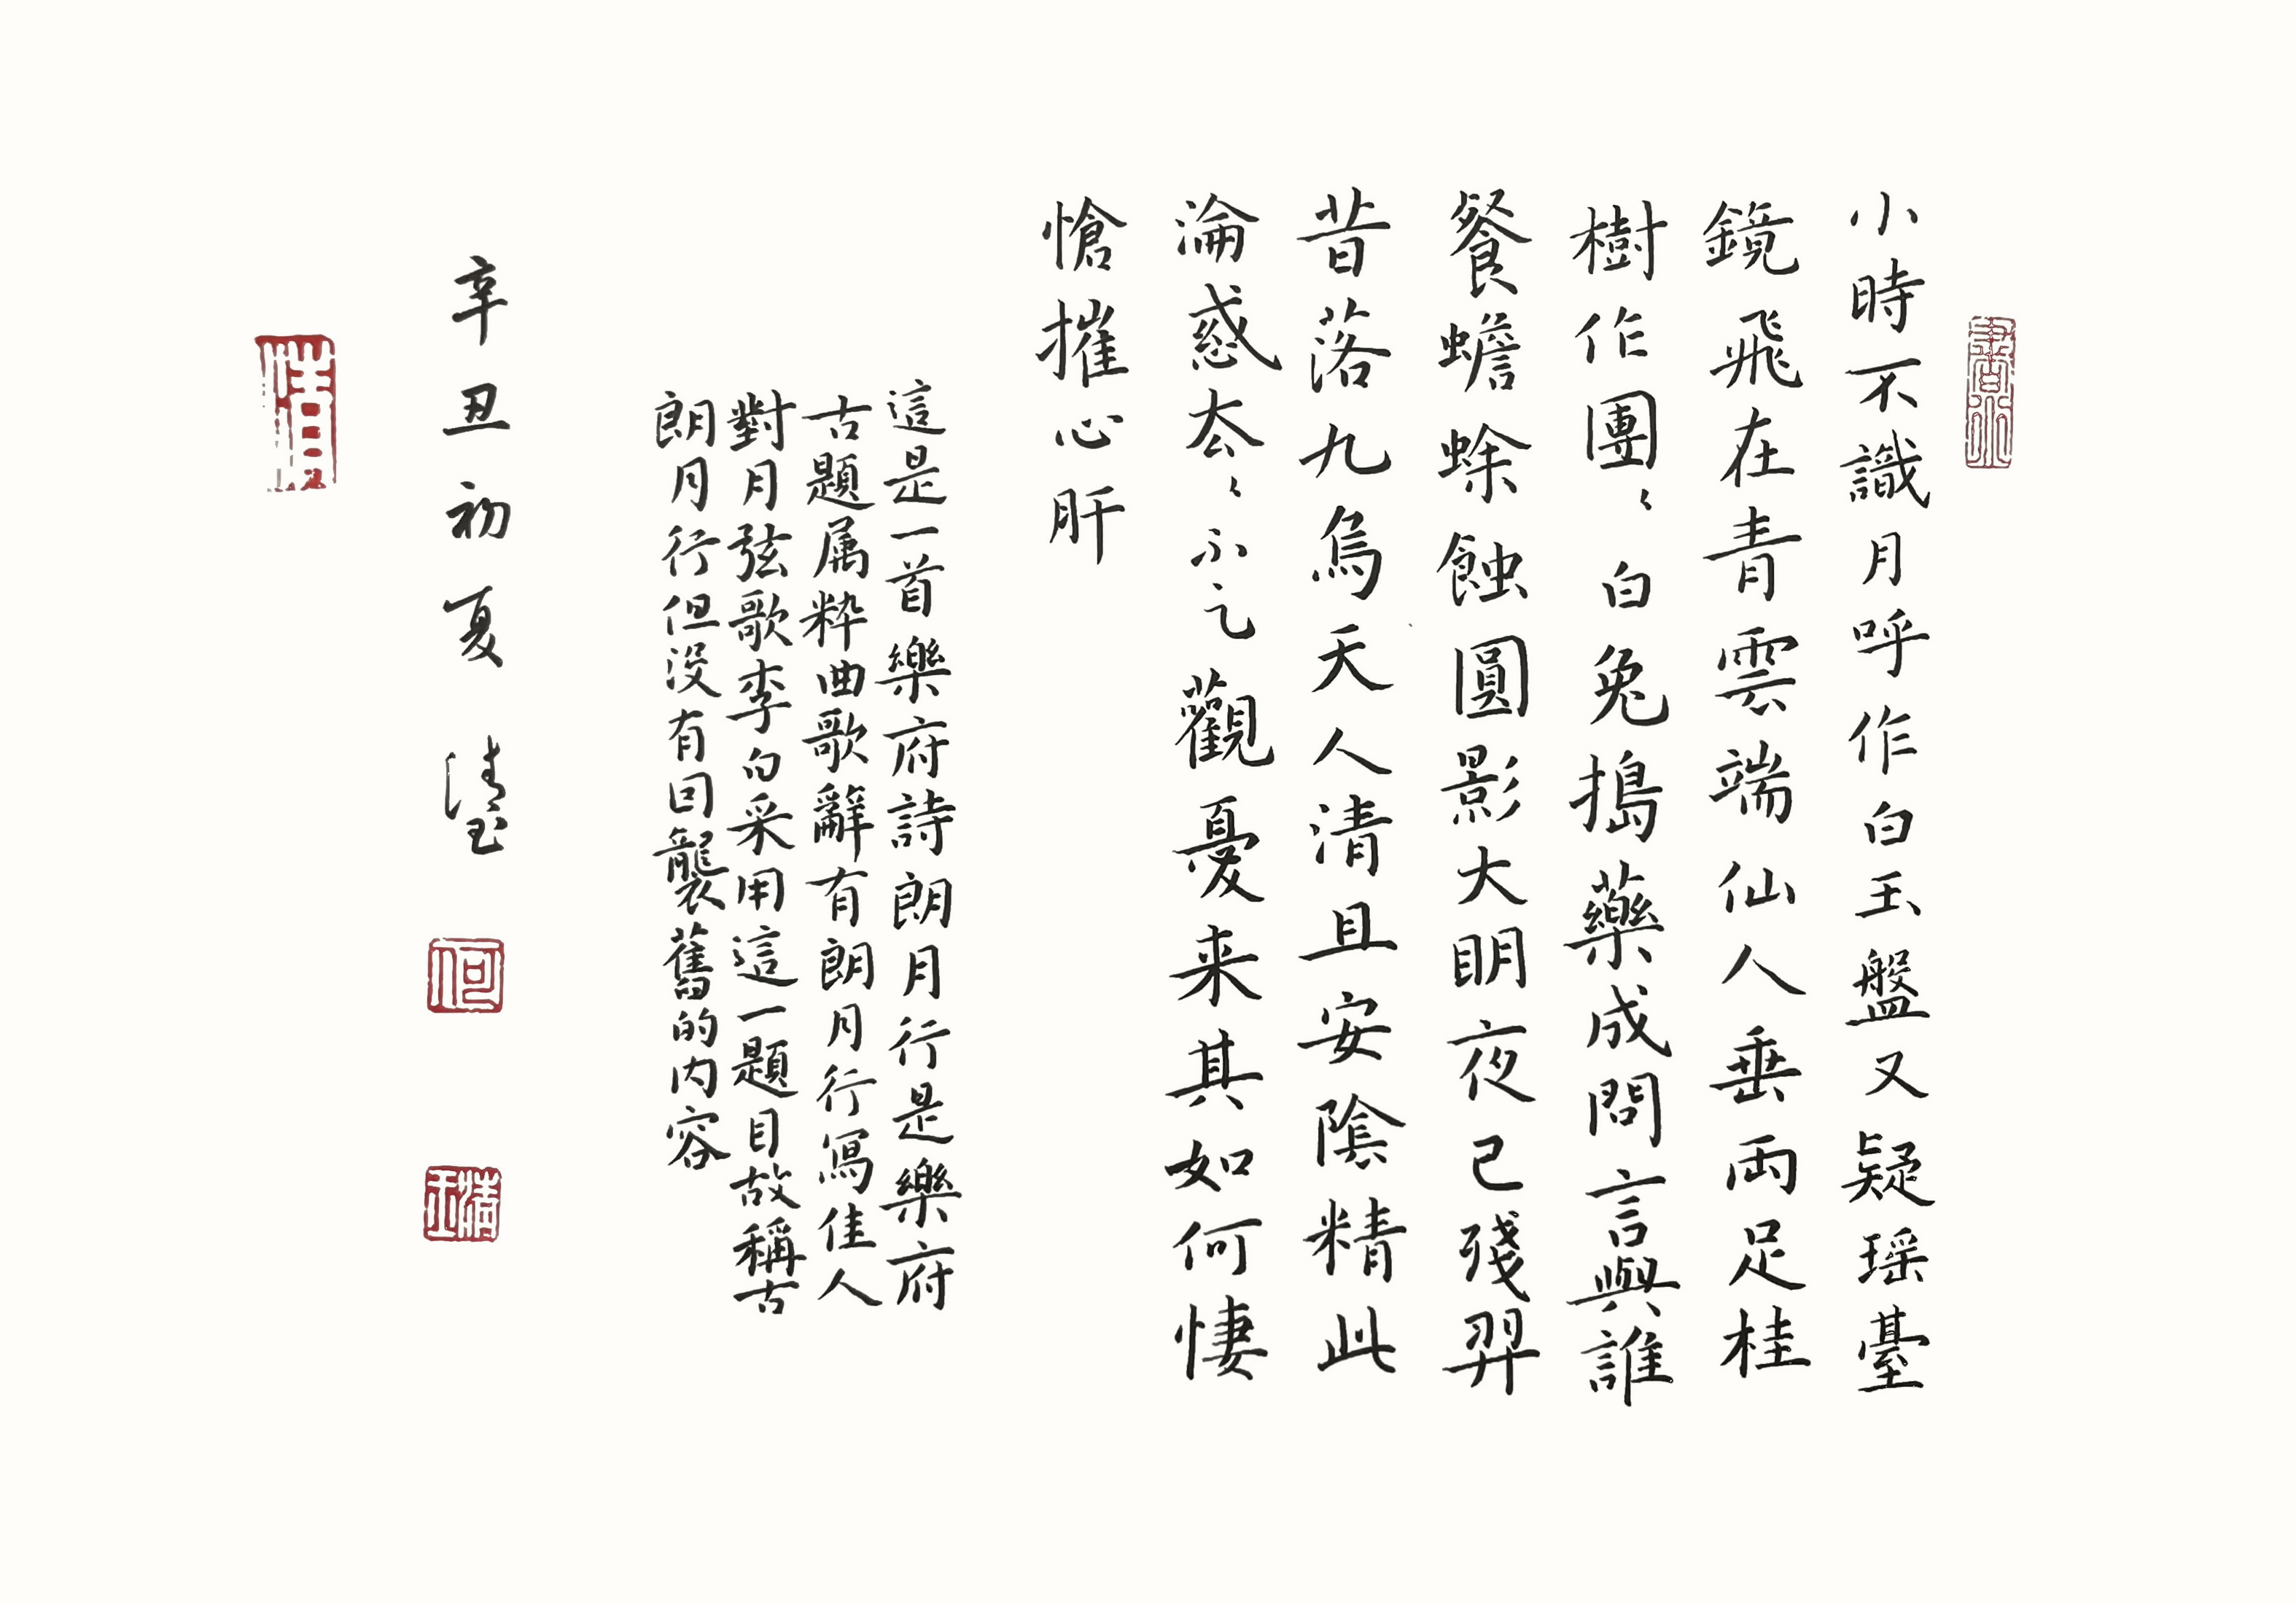 小時不識月呼作白玉盤又疑瑶臺
鏡飛在青雲端仙人垂兩足桂
樹作團々白兔搗藥成問言與誰
餐蟾蜍蝕圓影大明夜已殘羿
昔落九烏天人清且安陰精此
淪惑去々不足觀憂来其如何悽
愴摧心肝
這是一首樂府詩朗月行是樂府
古題属粋曲歌辭有朗月行寫佳人
對月弦歌李白采用這一題目故稱古
朗月行但没有因襲舊的内容
辛丑初夏 清玉
何
清玉